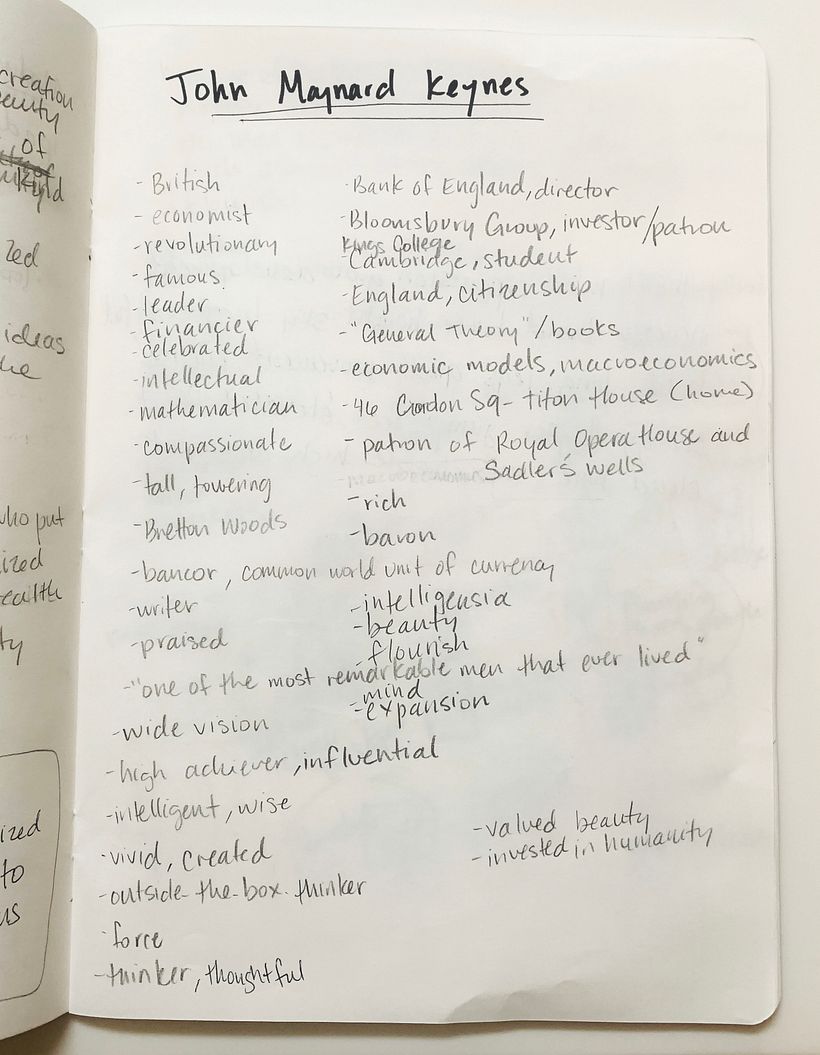 creation
of
ized
ideas
who put
ized
ealth
ty
ized
to
us
John Maynard Keynes
- British
- economist
- revolutionary
- famous
- leader
- financier
- celebrated
- intellectual
- mathematician
- compassionate
- tall, towering
- Bretton Woods
- bancor, common world unit of currency
- writer
- praised
- "one of the most remarkable men that ever lived"
- wide vision
- high achiever, influential
- intelligent, wise
- vivid, created
- outside-the-box-thinker
- force
- thinker, thoughtful
- Bank of England, director
- Bloomsbury Group, investor/patron
Kings College
- Cambridge, student
- England, citizenship
- "General Theory"/books
- economic models, macroeconomics
- 46 Gordon Sq - Titon House (home)
- patron of Royal Opera House and
Sadler's wells
- rich
- baron
- intelligensia
- beauty
- flourish
- mind
- expansion
- valued beauty
- invested in humanity